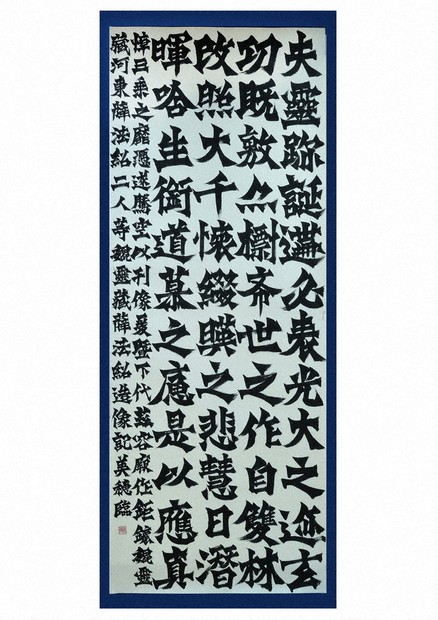 夫靈跡誕遘必表光大之迹玄
功既敷亦標希世之作自雙林
改照大千懷綴暎之悲慧日潛
暉哈生銜道慕之應是以應真
悼三乘之靡憑遂騰空以刊像爰暨下代茲容厥作鉅鹿魏靈
藏河東薛法紹二人等魏靈藏薛法紹造像記美穂臨